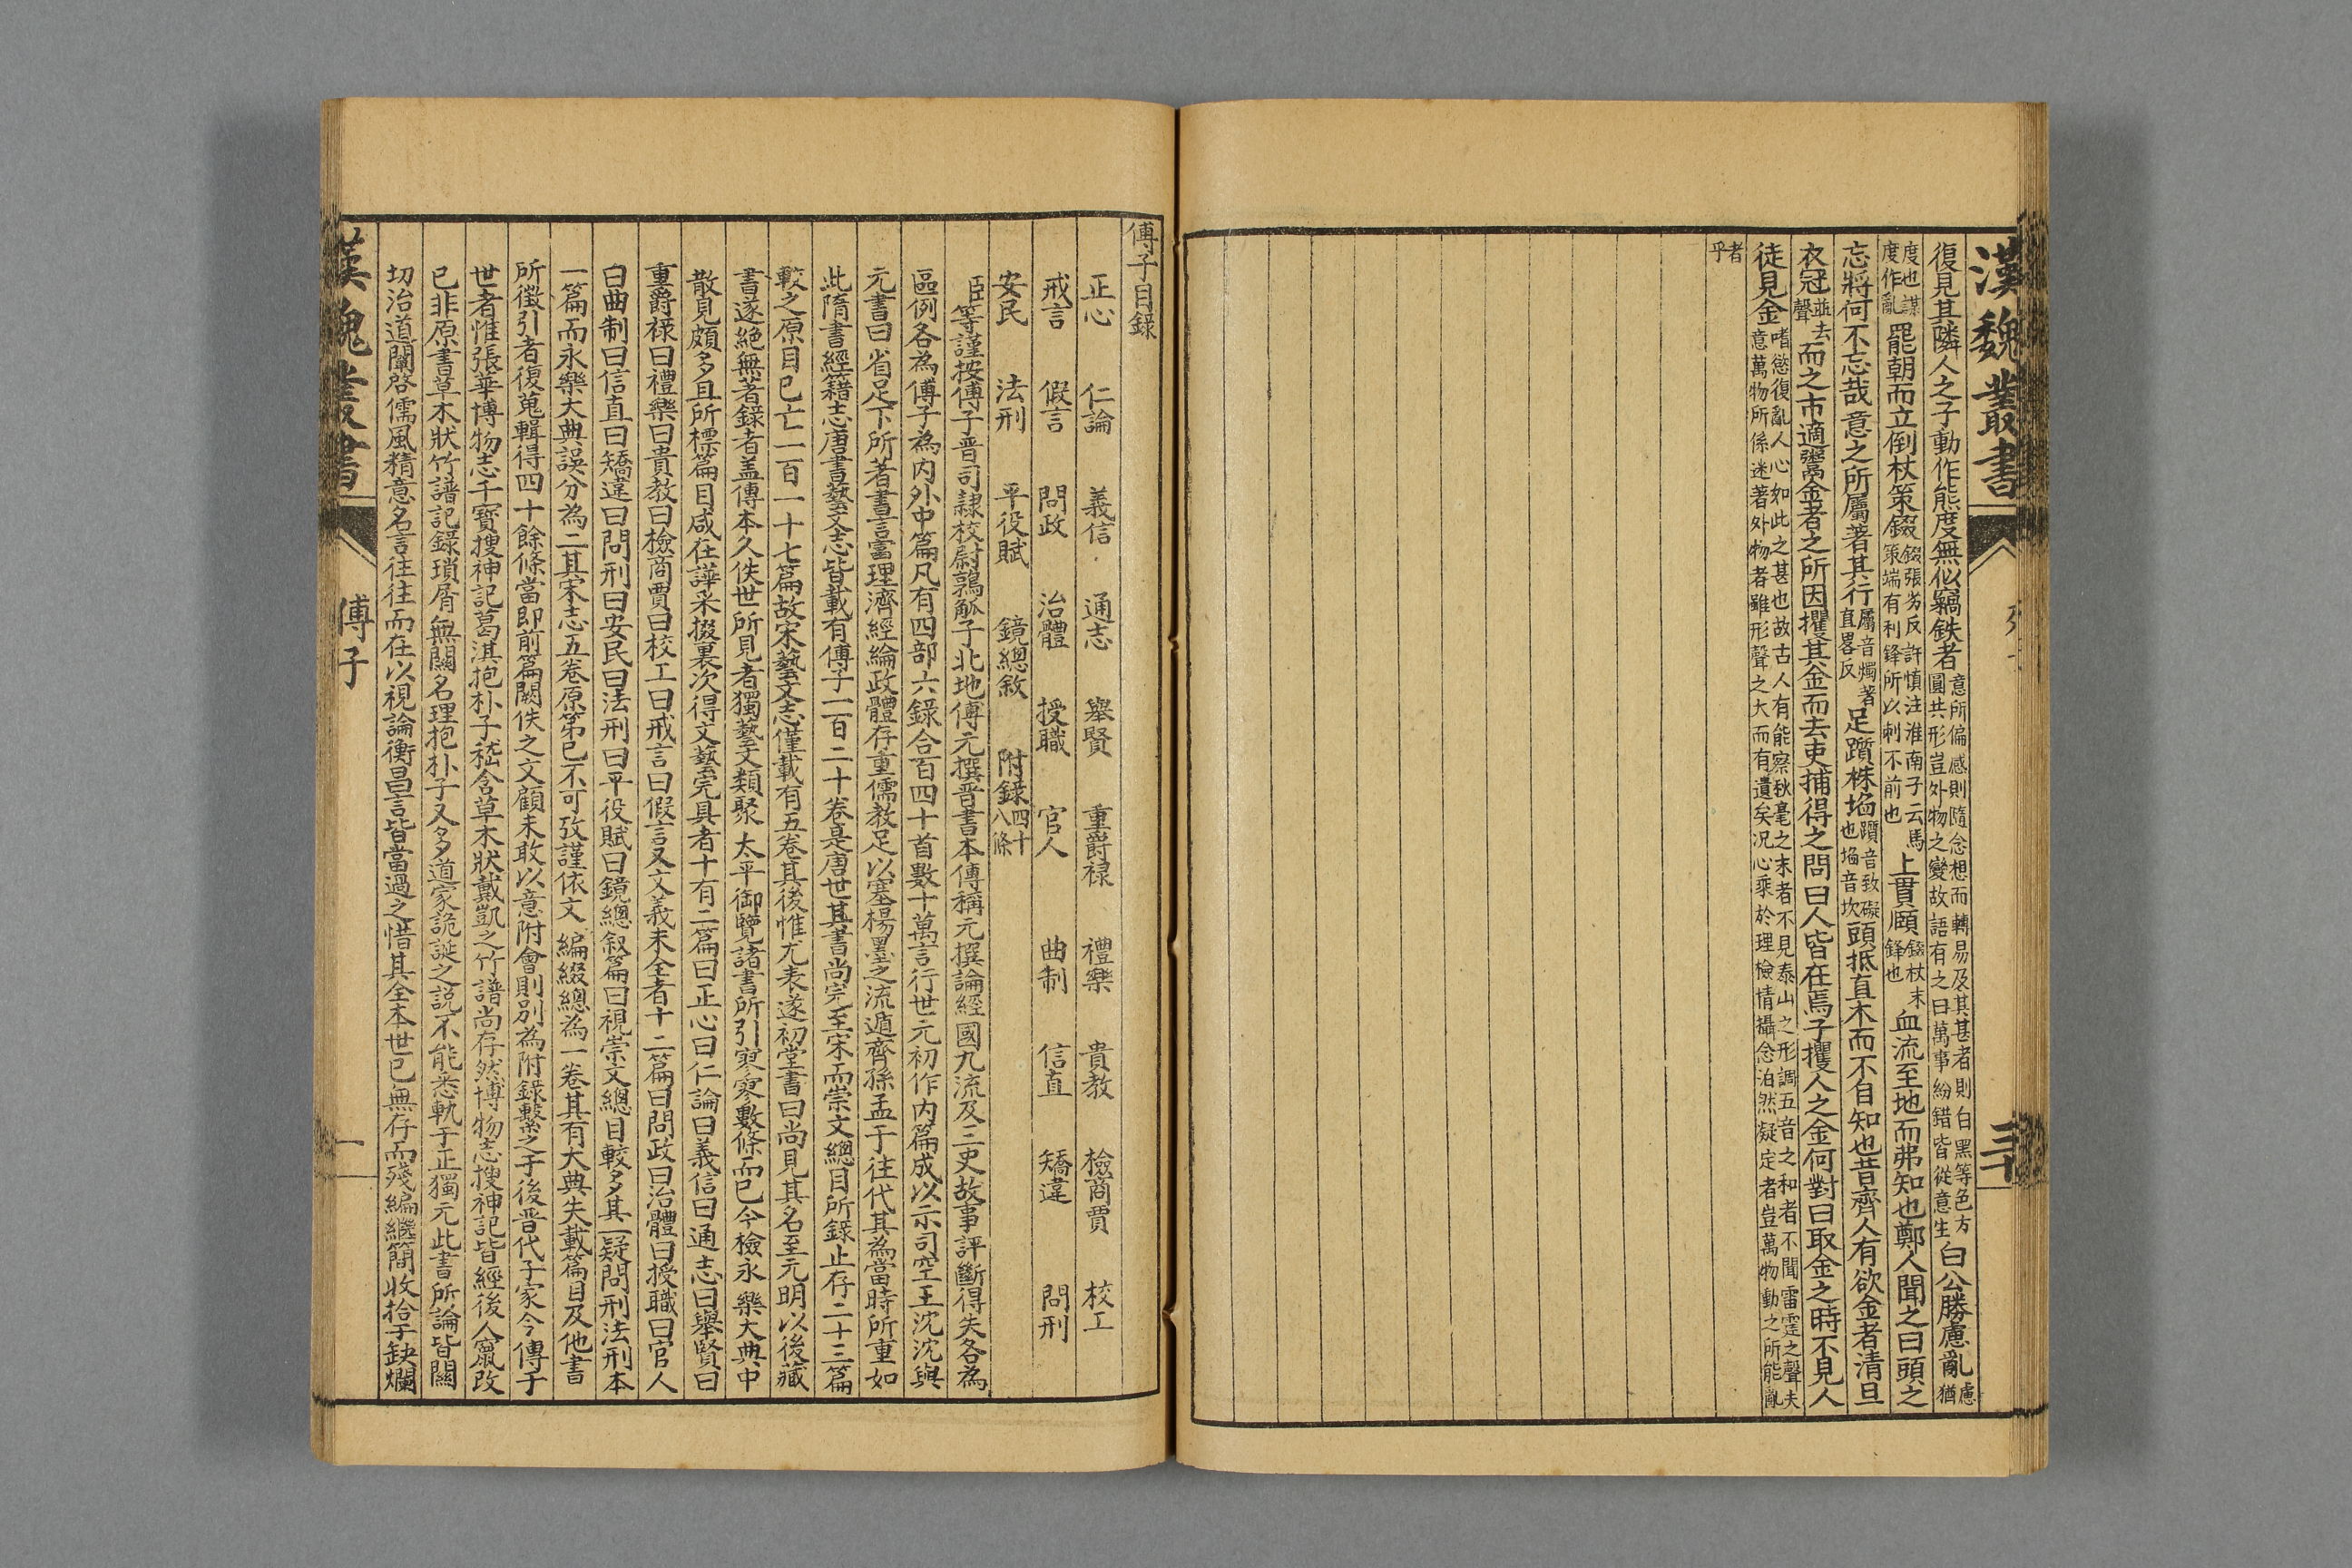 漢魏叢書
三十
復見其隣人之子動作態度無似竊鈇者意所偏惑則隨念想而轉易及其甚者則白黑等色方圓共形豈外物之變故語有之曰萬事紛錯皆從意生白公勝慮亂慮猶
度也謀度作亂罷朝而立倒杖策錣錣張劣反許慎注淮南子云馬策端有利鋒所以刺不前也上貫頤錣杖末鋒也血流至地而弗知也鄭人聞之曰頭之
忘將何不忘哉意之所屬著其行屬音燭著直畧反足躓株埳躓音致礙也埳音坎頭抵直木而不自知也昔齊人有欲金者清旦
衣冠並去聲而之市適鬻金者之所因攫其金而去吏捕得之問曰人皆在焉子攫人之金何對曰取金之時不見人
徒見金嗜慾復亂人心如此之甚也故古人有能察秋毫之末者不見泰山之形調五音之和者不聞雷霆之聲夫意萬物所係迷著外物者雖形聲之大而有遺矣况心乘於理檢情攝念泊然凝定者豈萬物動之所能亂
者乎
傅子目録
正心 仁論 義信 通志 舉賢 重爵禄 禮樂 貴教 檢商賈 校工
戒言 假言 問政 治體 授職 官人 曲制 信直 矯違 問刑
安民 法刑 平役賦 鏡總敘 附錄四十八條
臣等謹按傅子晋司隷校尉鶉觚子北地傅元撰晋書本傳稱元撰論經國九流及三史故事評斷得失各為
區例各為傅子為内外中篇凡有四部六錄合百四十首數十萬言行世元初作内篇成以示司空王沈沈與
元書曰省足下所著書言富理濟經綸政體存重儒教足以塞楊墨之流遁齊孫孟于往代其為當時所重如
此隋書經籍志唐書藝文志皆載有傅子一百二十卷是唐世其書尚完至宋而崇文總目所錄止存二十三篇
較之原目已亡一百一十七篇故宋藝文志僅載有五卷其後惟尤袤遂初堂書曰尚見其名至元明以後藏
書遂絕無著錄者盖傳本久佚世所見者獨藝文類聚太平御覽諸書所引寥寥數條而已今檢永樂大典中
散見頗多且所標篇目咸在謹采掇裒次得文藝完具者十有二篇曰正心曰仁論曰義信曰通志曰舉賢曰
重爵禄曰禮樂曰貴教曰檢商賈曰校工曰戒言曰假言又文義未全者十二篇曰問政曰治體曰授職曰官人
曰曲制曰信直曰矯違曰問刑曰安民曰法刑曰平役賦曰鏡總叙篇曰視崇文總目較多其一疑問刑法刑本
一篇而永樂大典誤分為二其宋志五卷原第已不可攷謹依文編綴總為一卷其有大典失載篇目及他書
所徴引者復蒐輯得四十餘條當即前篇闕佚之文顧未敢以意附會則别為附錄繫之于後晋代子家今傳于
世者惟張華博物志干寳搜神記葛洪抱朴子嵇含草木狀戴凱之竹譜尚存然博物志搜神記皆經後人竄改
已非原書草木狀竹譜記錄瑣屑無關名理抱朴子又多道家詭誕之説不能悉軌于正獨元此書所論皆關
切治道闡啓儒風精意名言往往而在以視論衡昌言皆當過之惜其全本世已無存而殘編㡭簡收拾于缺爛
漢魏叢書
傅子
一